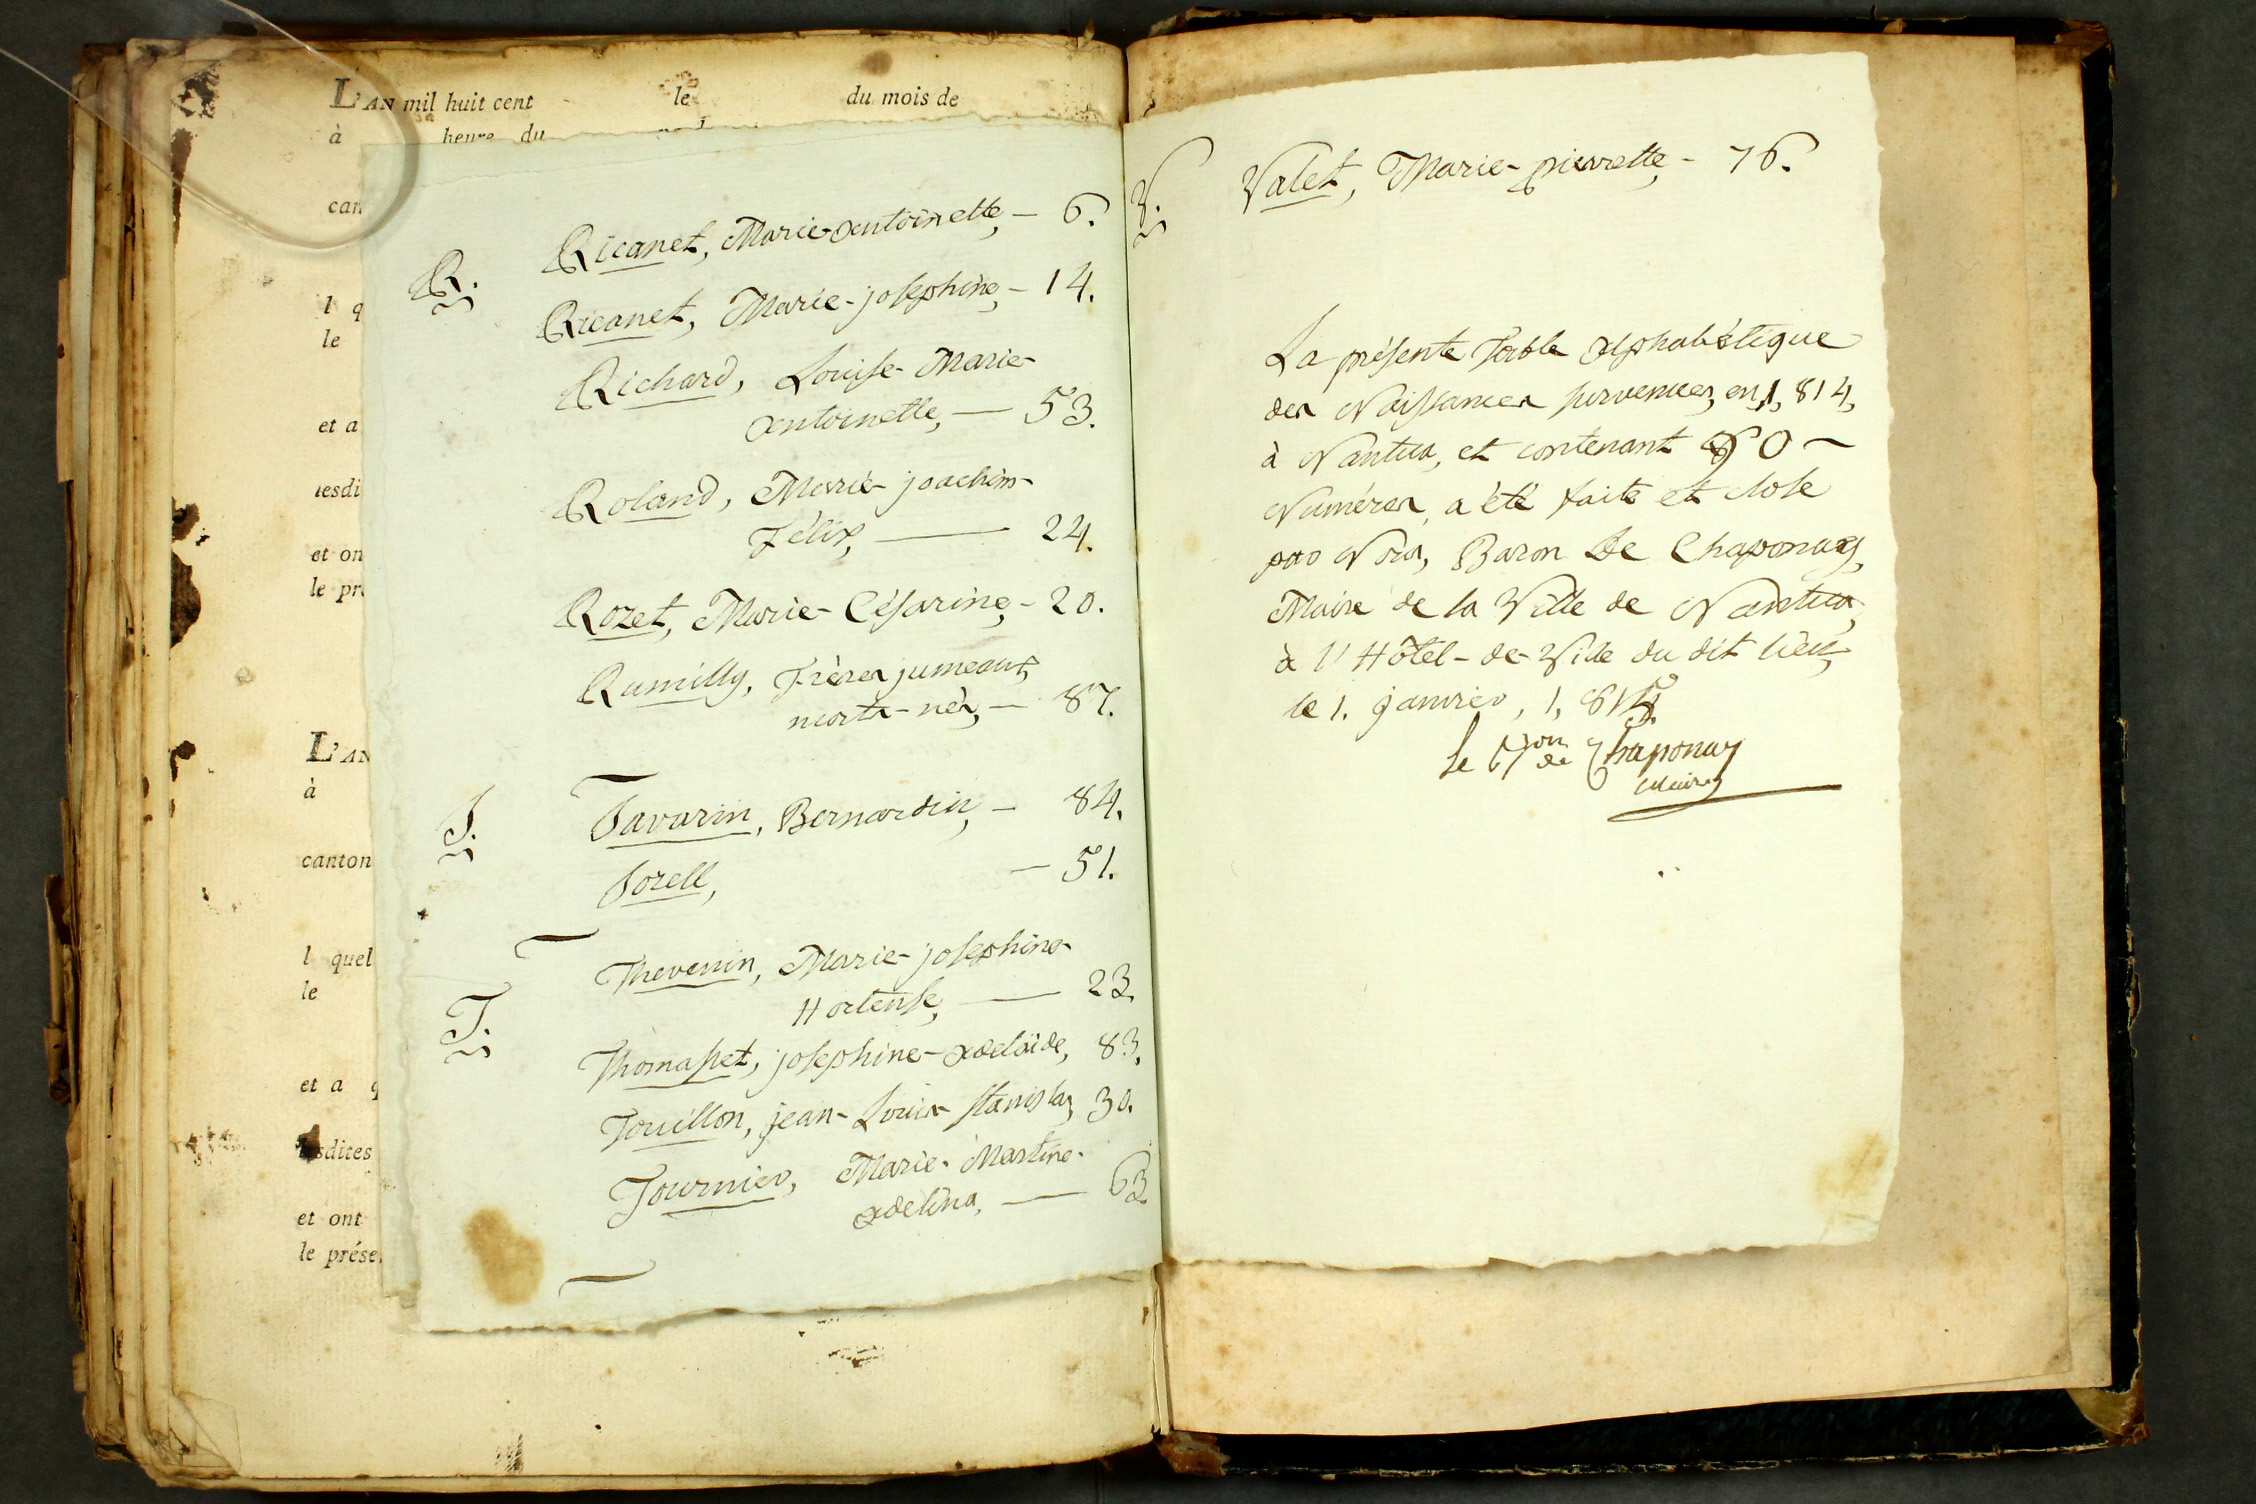 L'AN mil huit cent le du mois de
à heure du
can
l q
le
et a
lesdi
et on
le pré
L'AN
à
canton
l quel
le
et a q
lesdites
et ont
le prése
R.
Ricanet, Marie-antoinette, - 6.
Ricanet, Marie-josephine, - 14.
Richard, Louise-Marie-
antoinette, — 53.
Roland, Marie-joachim-
Félix, — 24.
Rozet, Marie-Césarine, - 20.
Rumilly, Frères jumeaux,
morts-nés, — 87.
S.
Savarin, Bernardin, - 84.
Sorell, — 51.
T.
Thevenin, Marie-josephine-
Hortense, — 23.
Thomasset, josephine-adelaïde, 83.
Touillon, jean-Louis-stanislas, 30.
Tournier, Marie-Martine-
adelina, — 63.
V.
Valet, Marie-pierrette, - 76.
La présente Table alphabétique
des Naissances survenues, en 1,814,
à Nantua, et contenant 90 -
Numéros, a été faite et close
par Nous, Baron De Chaponay,
Maire de la Ville de Nantua,
à l'Hôtel-de-Ville du dit lieu,
le 1. janvier, 1,815.
le Bon de Chaponay
Maire